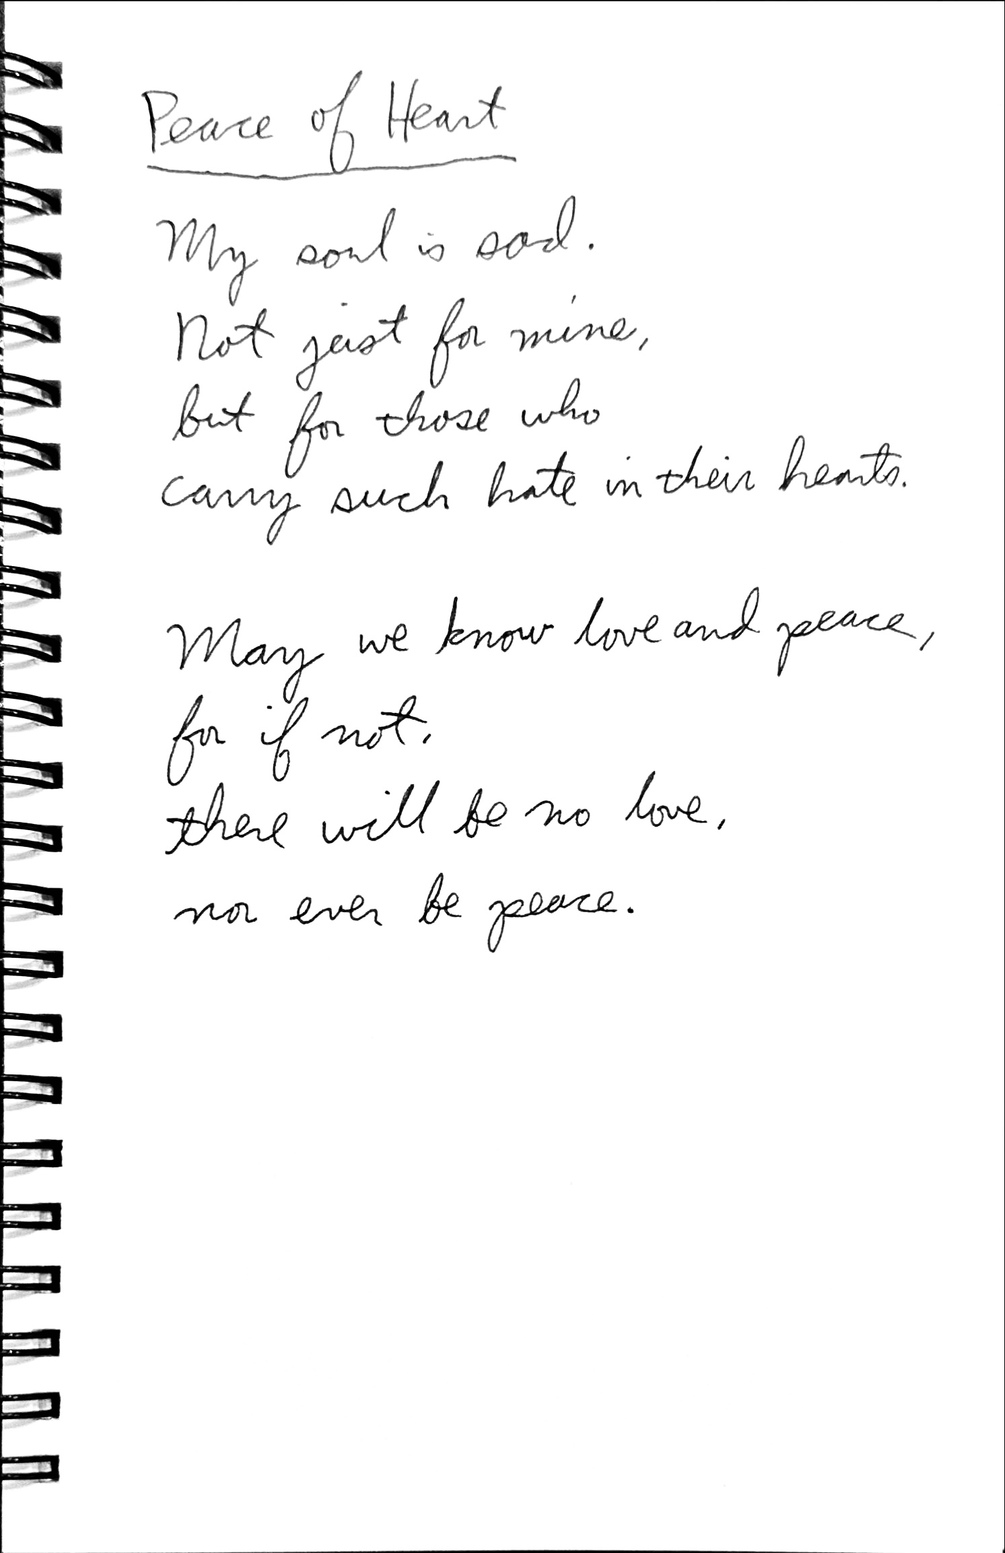 Peace of Heart
My soul is sad.
Not just for mine,
but for those who
carry such hate in their hearts.
May we know love and peace,
for if not,
there will be no love,
nor ever be peace.